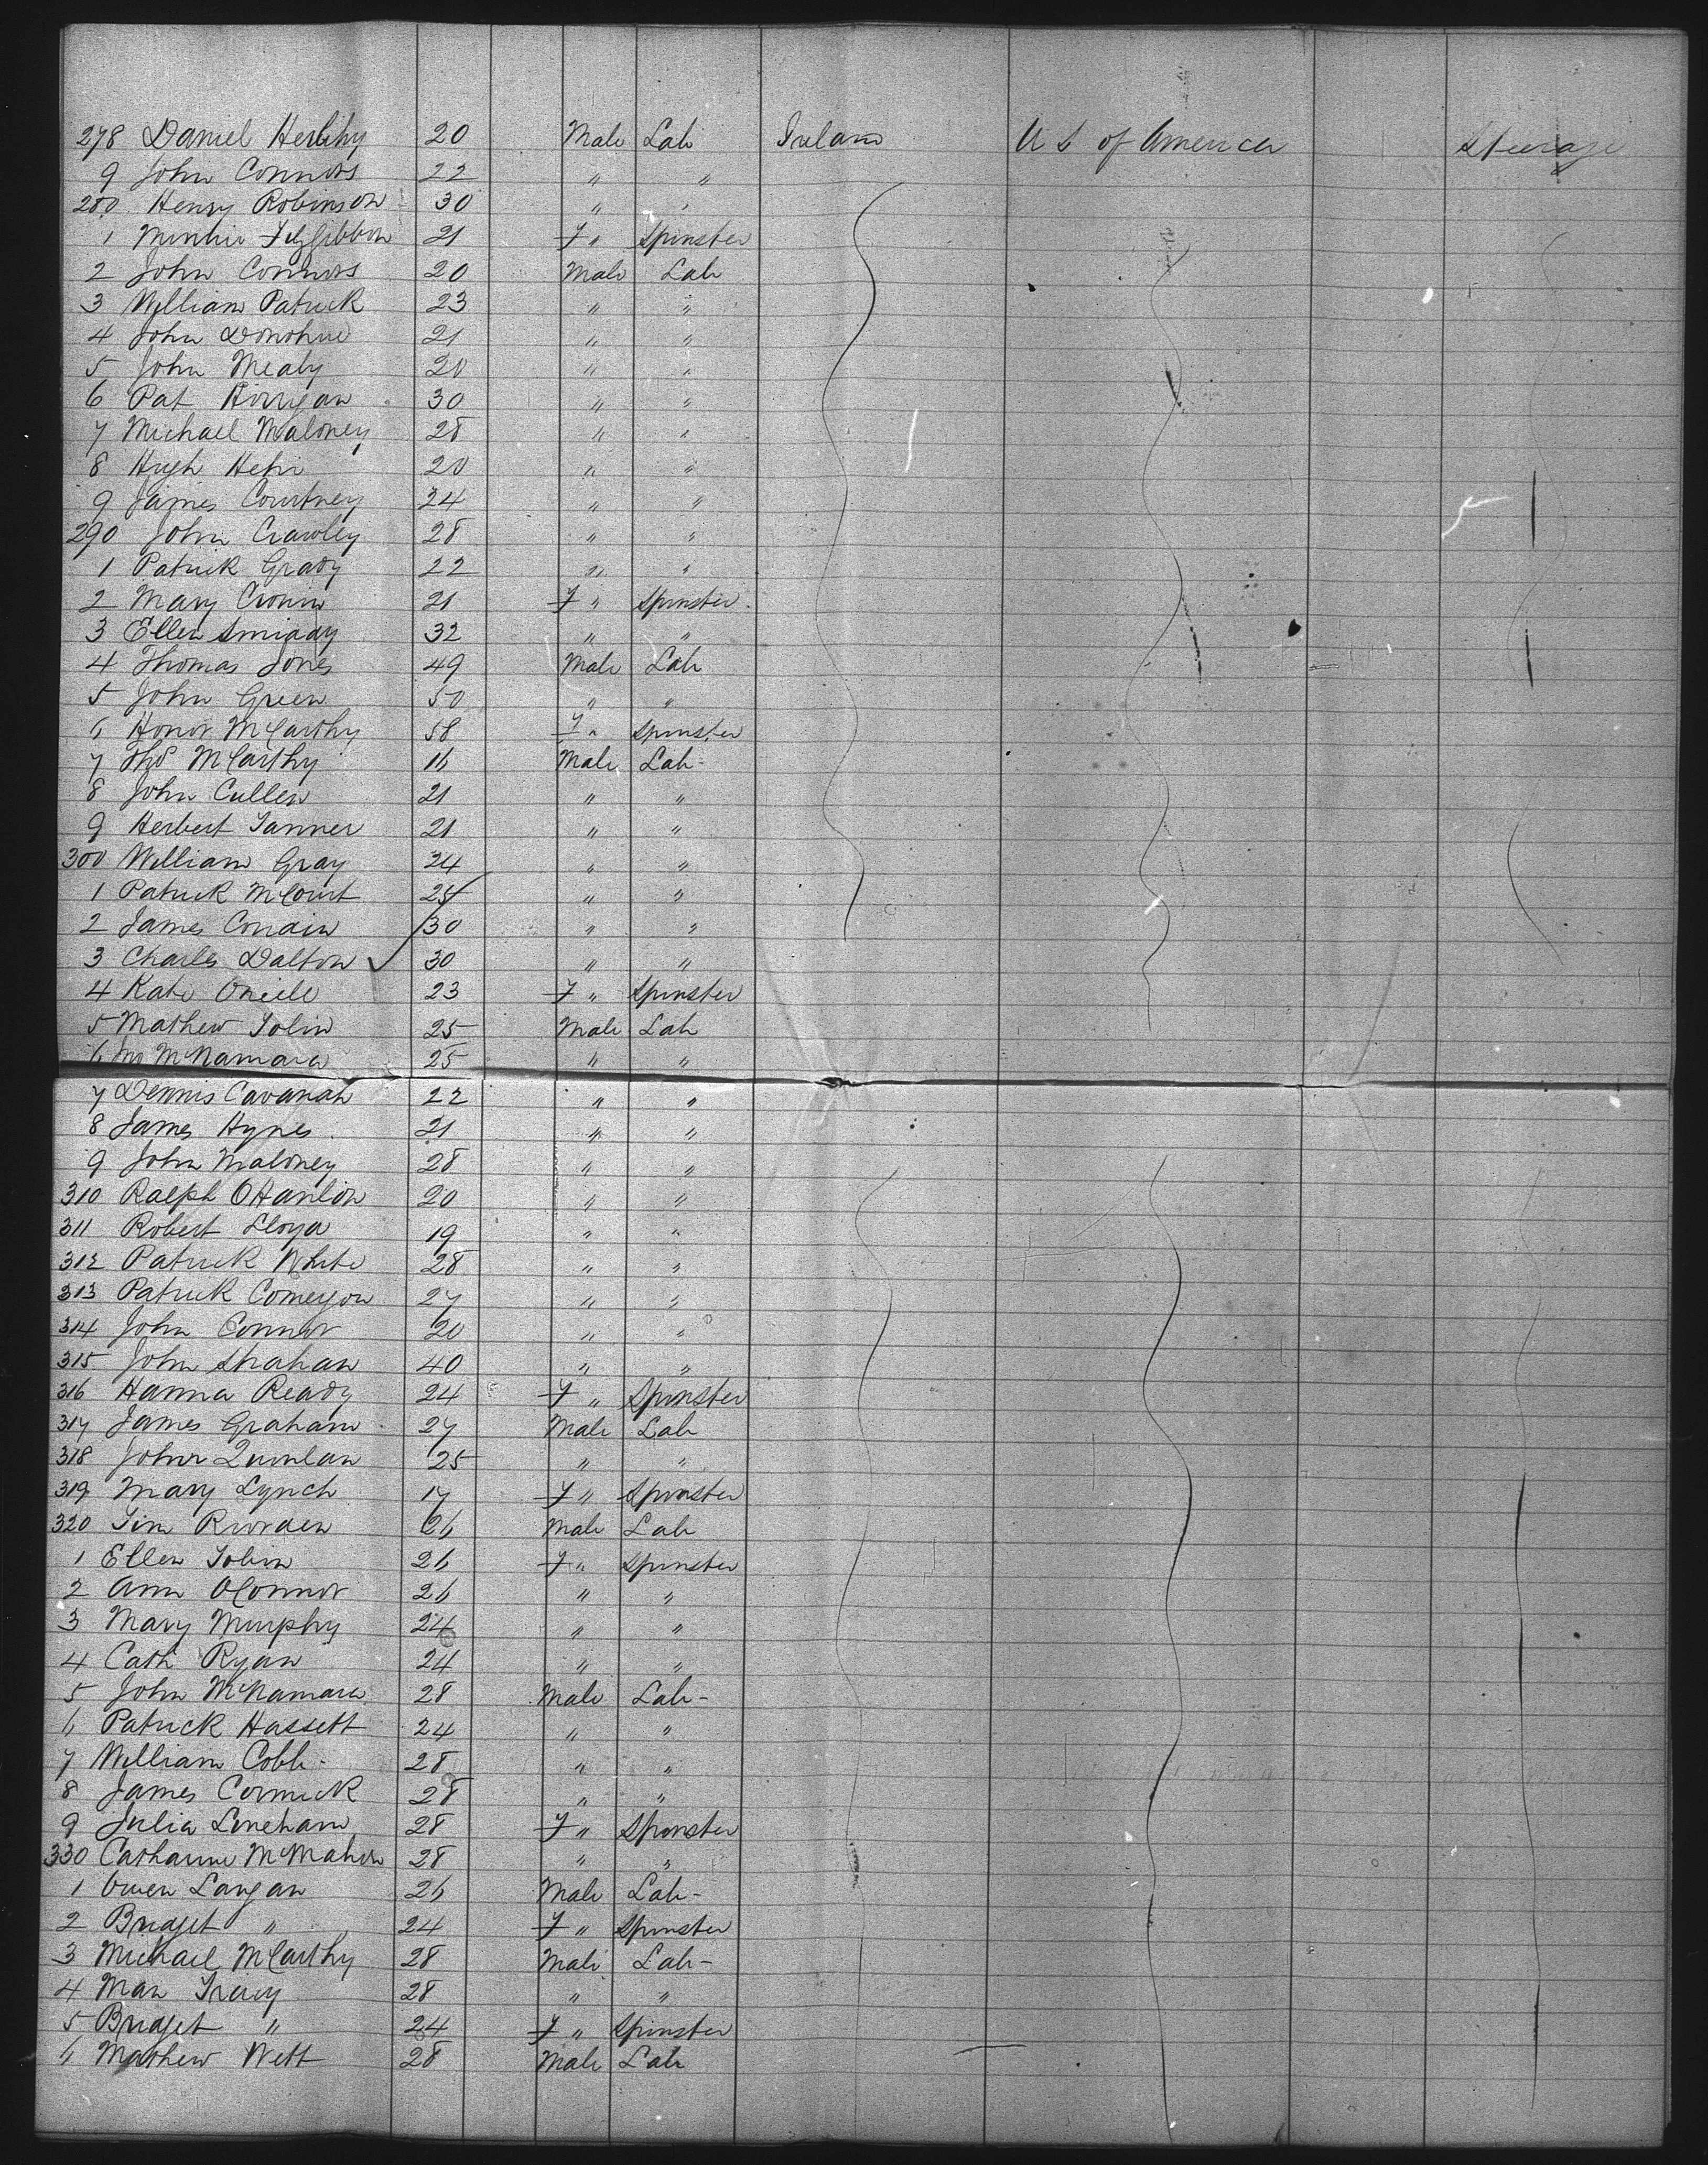 278 Daniel Herlihy 20 Male Lab Ireland U S of America Steerage
9 John Connors 22 " "
280 Henry Robinson 30 " "
1 Minnie FitzGibbon 21 F " Spinster
2 John Connors 20 Male Lab
3 William Patrick 23 " "
4 John Donohue 21 " "
5 John Mealy 20 " "
6 Pat Horrigan 30 " "
7 Michael Maloney 28 " "
8 Hugh 20 " "
9 James Courtney 24 " "
290 John Crawley 28 " "
1 Patrick Grady 22 " "
2 Mary Cronin 21 F " Spinster
3 Ellen Smiddy 32 " "
4 Thomas Jones 49 Male Lab
5 John Green 50 " "
6 Honor McCarthy 58 F " Spinster
7 Thos McCarthy 16 Male Lab-
8 John Cullen 21 " "
9 Herbert Tanner 21 " "
300 William Gray 24 " "
1 Patrick McCourt 25 " "
2 James Condin 30 " "
3 Charles Dalton 30 " "
4 Kate Oneile 23 F " Spinster
5 Mathew Tobin 25 Male Lab
6 McNamara 25 " "
7 Dennis Cavanah 22 " "
8 James Hynes 21 " "
9 John Maloney 28 " "
310 Ralph OHanlon 20 " "
311 Robert Lloyd 19 " "
312 Patrick White 28 " "
313 Patrick 27 " "
314 John Connor 20 " "
315 John Strahan 40 " "
316 Hanna Ready 24 F " Spinster
317 James Graham 27 Male Lab
318 John Quinlan 25 " "
319 Mary Lynch 17 F " Spinster
320 Tim Riorden 26 Male Lab
1 Ellen Tobin 26 F " Spinster
2 Ann OConnor 26 " "
3 Mary Murphy 24 " "
4 Cath Ryan 24 " "
5 John McNamara 28 Male Lab-
6 Patrick Hassett 24 " "
7 William Cobb- 28 " "
8 James Cormick 28 " "
9 Julia Linehan 28 F " Spinster
330 Catharine McMahon 28 " "
1 Owen Langan 26 Male Lab-
2 Bridget " 24 F " Spinster
3 Michael McCarthy 28 Male Lab-
4 Man Tracy 28 " "
5 Bridget " 24 F " Spinster
6 Mathew Wett 28 Male Lab